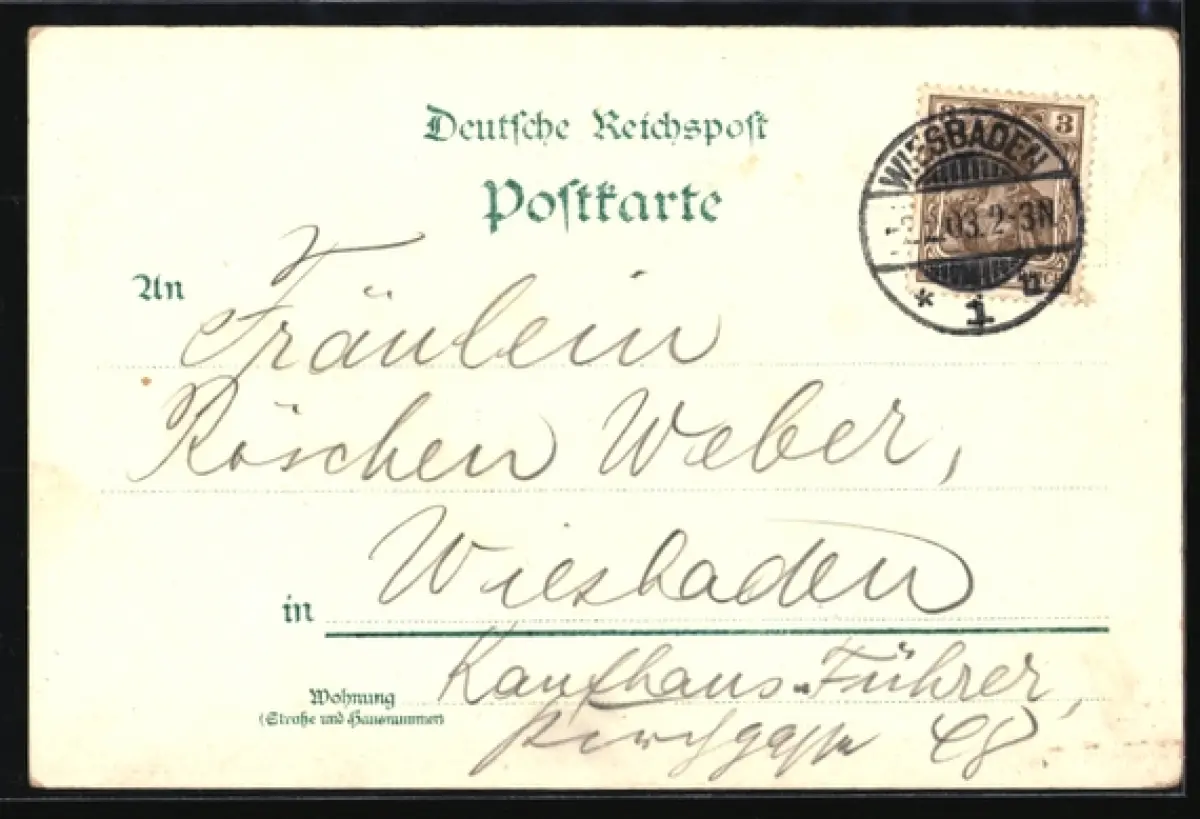 Deutsche Reichspost
Postkarte
3
WIESBADEN
2.03.2-3N
* 1 n
An
Fräulein
Röschen Weber,
in Wiesbaden
Wohnung
(Straße und Hausnummer)
Kaufhaus Führer,
Kirchgasse 48.